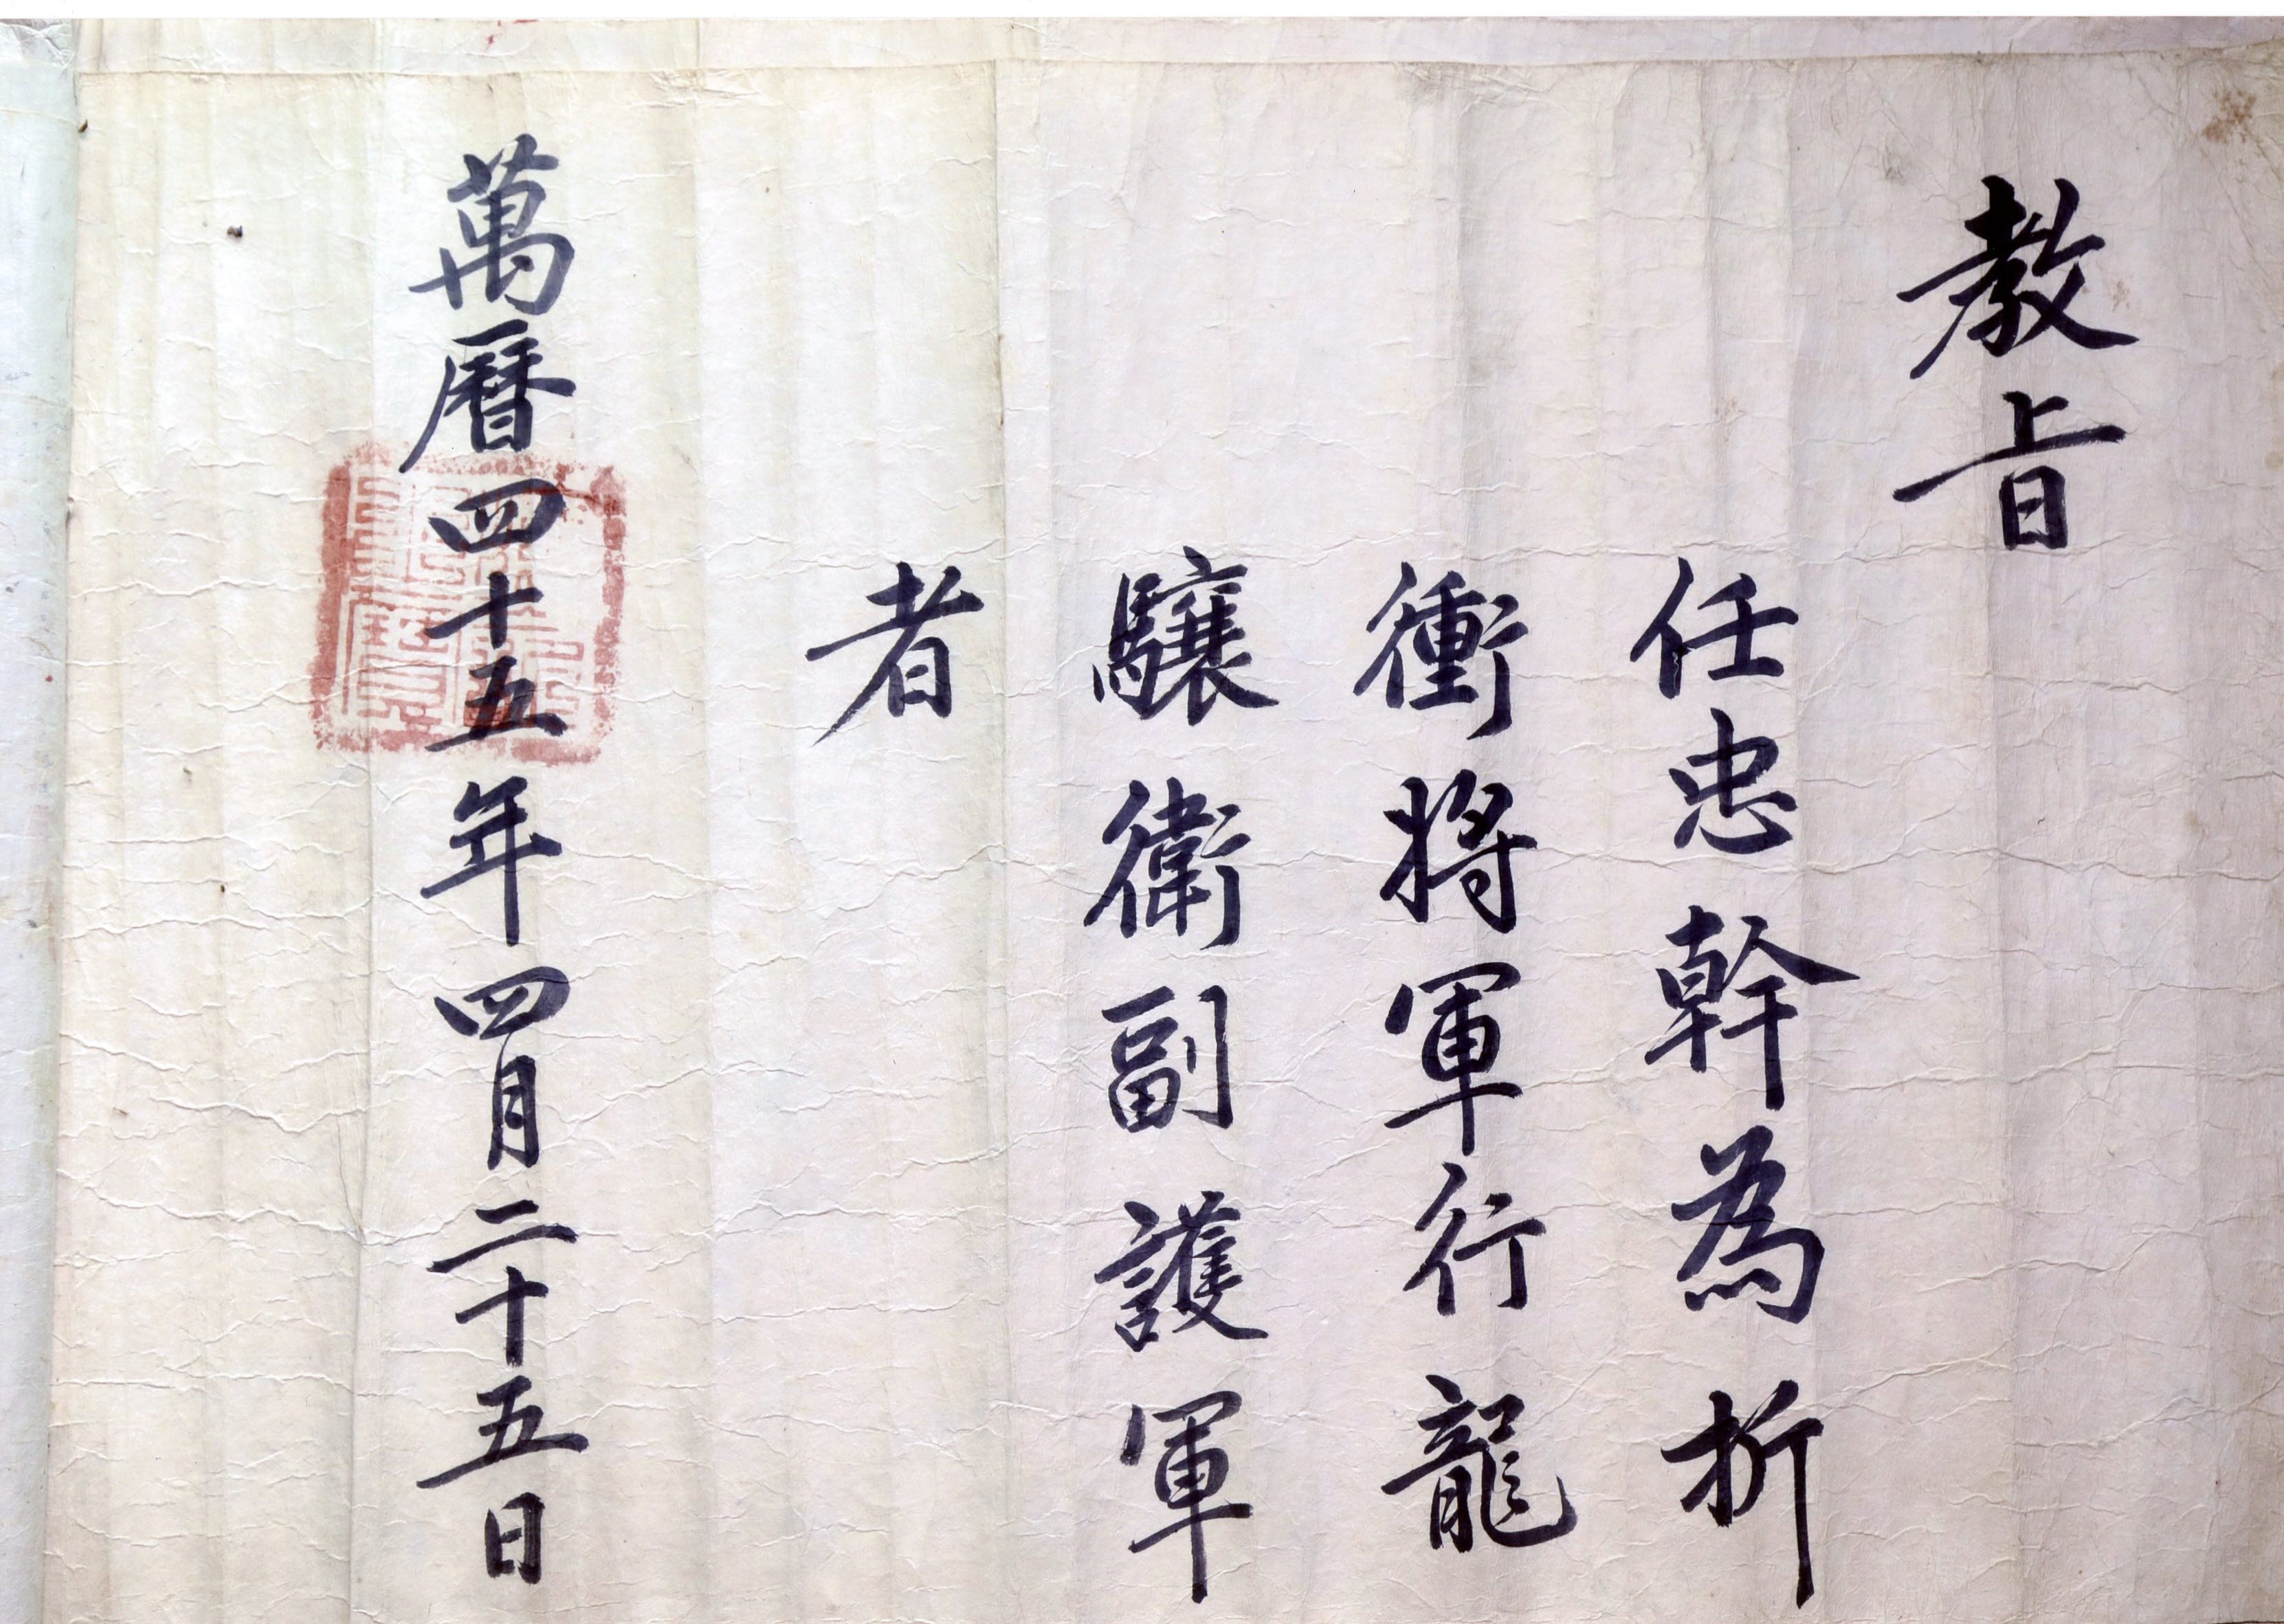 教旨
任忠幹為折
衝將軍行龍
驤衛副護軍
者
萬曆四十五年四月二十五日